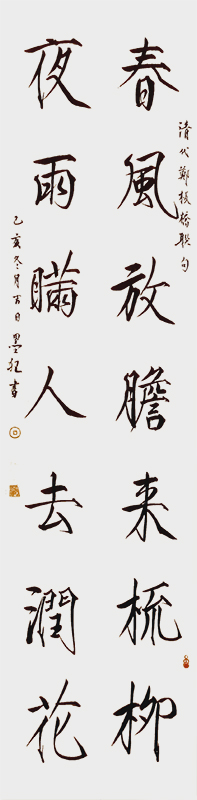 清代鄭板橋聯句
春風放膽来梳柳
夜雨瞞人去潤花
己亥冬月吉日墨狂書